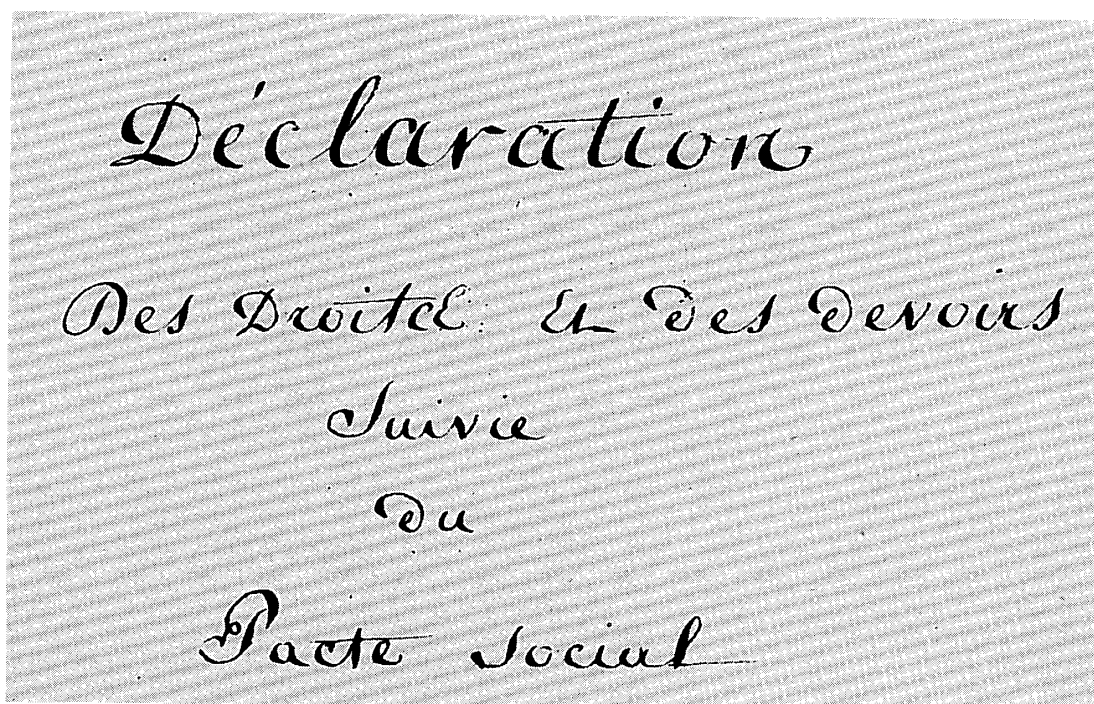 Déclaration
Des Droits: Et des devoirs
Suivie
du
Pacte Social